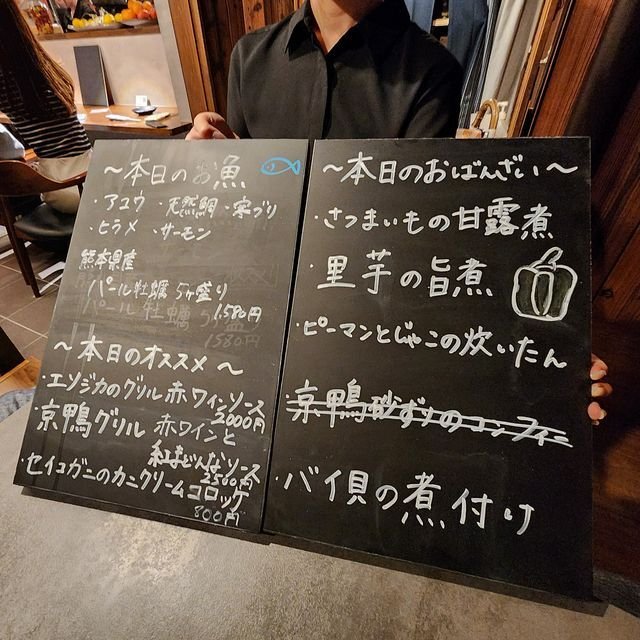 ～本日のお魚
・アユウ ・天然鯛 ・寒ブリ
・ヒラメ ・サーモン
熊本県産
パール牡蠣 5ヶ盛り
1580円
パール牡蠣 5ヶ盛
1580円
～本日のオススメ～
・エゾジカのグリル 赤ワインソース
2000円
・京鴨グリル 赤ワインと
紅まどんなソース
2500円
・セイコガニのカニクリームコロッケ
800円
～本日のおばんざい～
・さつまいもの甘露煮
・里芋の旨煮
・ピーマンとじゃこの炊いたん
・京鴨砂ずりのコンフィ
・バイ貝の煮付け